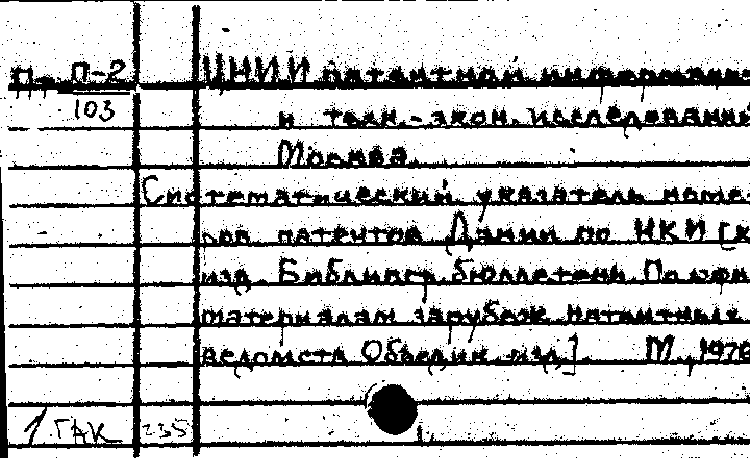 П-2
103
ЦНИИ патентной информации
и техн.-экон. исследований
Москва
Систематический указатель номе-
ров патентов Дании по НКИ [к
изд. Библиогр. бюллетень По офи
материалам зарубеж патентных
ведомств Объедин. изд.] М., 1970
1 ГАК 235